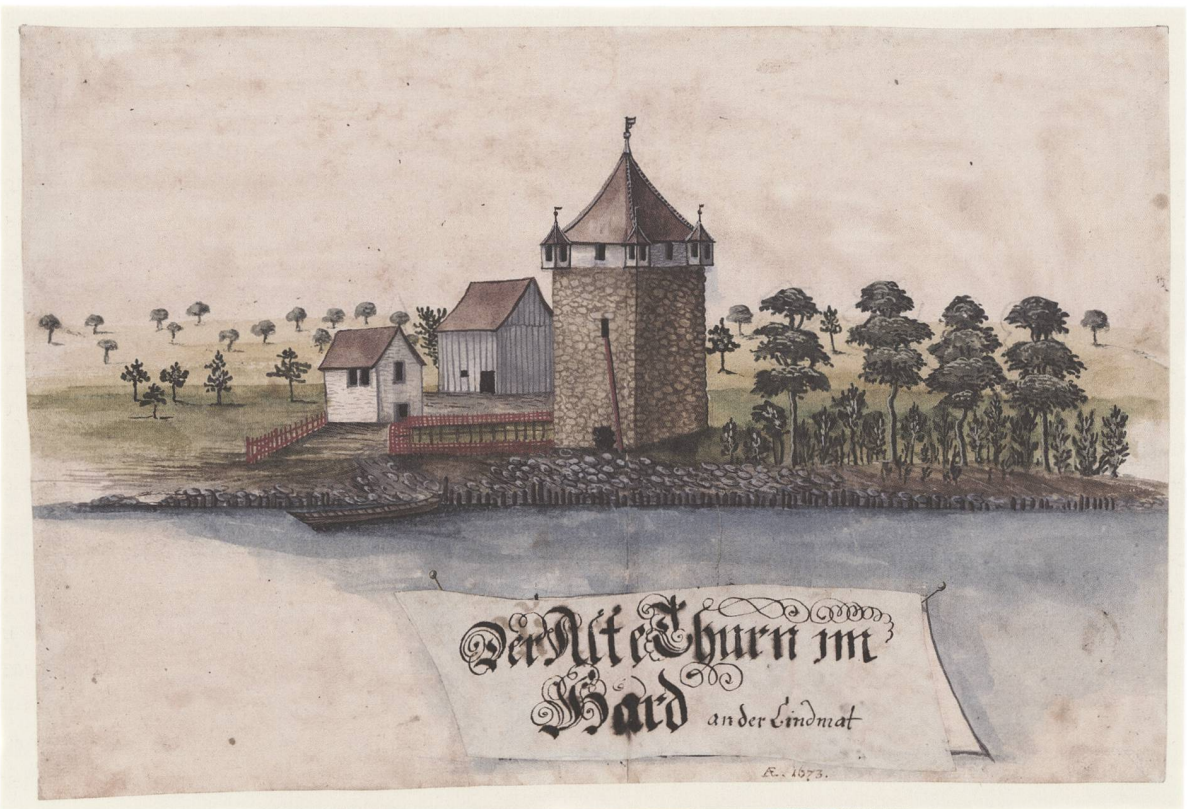 Der Alte Thurn im
Hard an der Lindmat
Æ.. 1673.